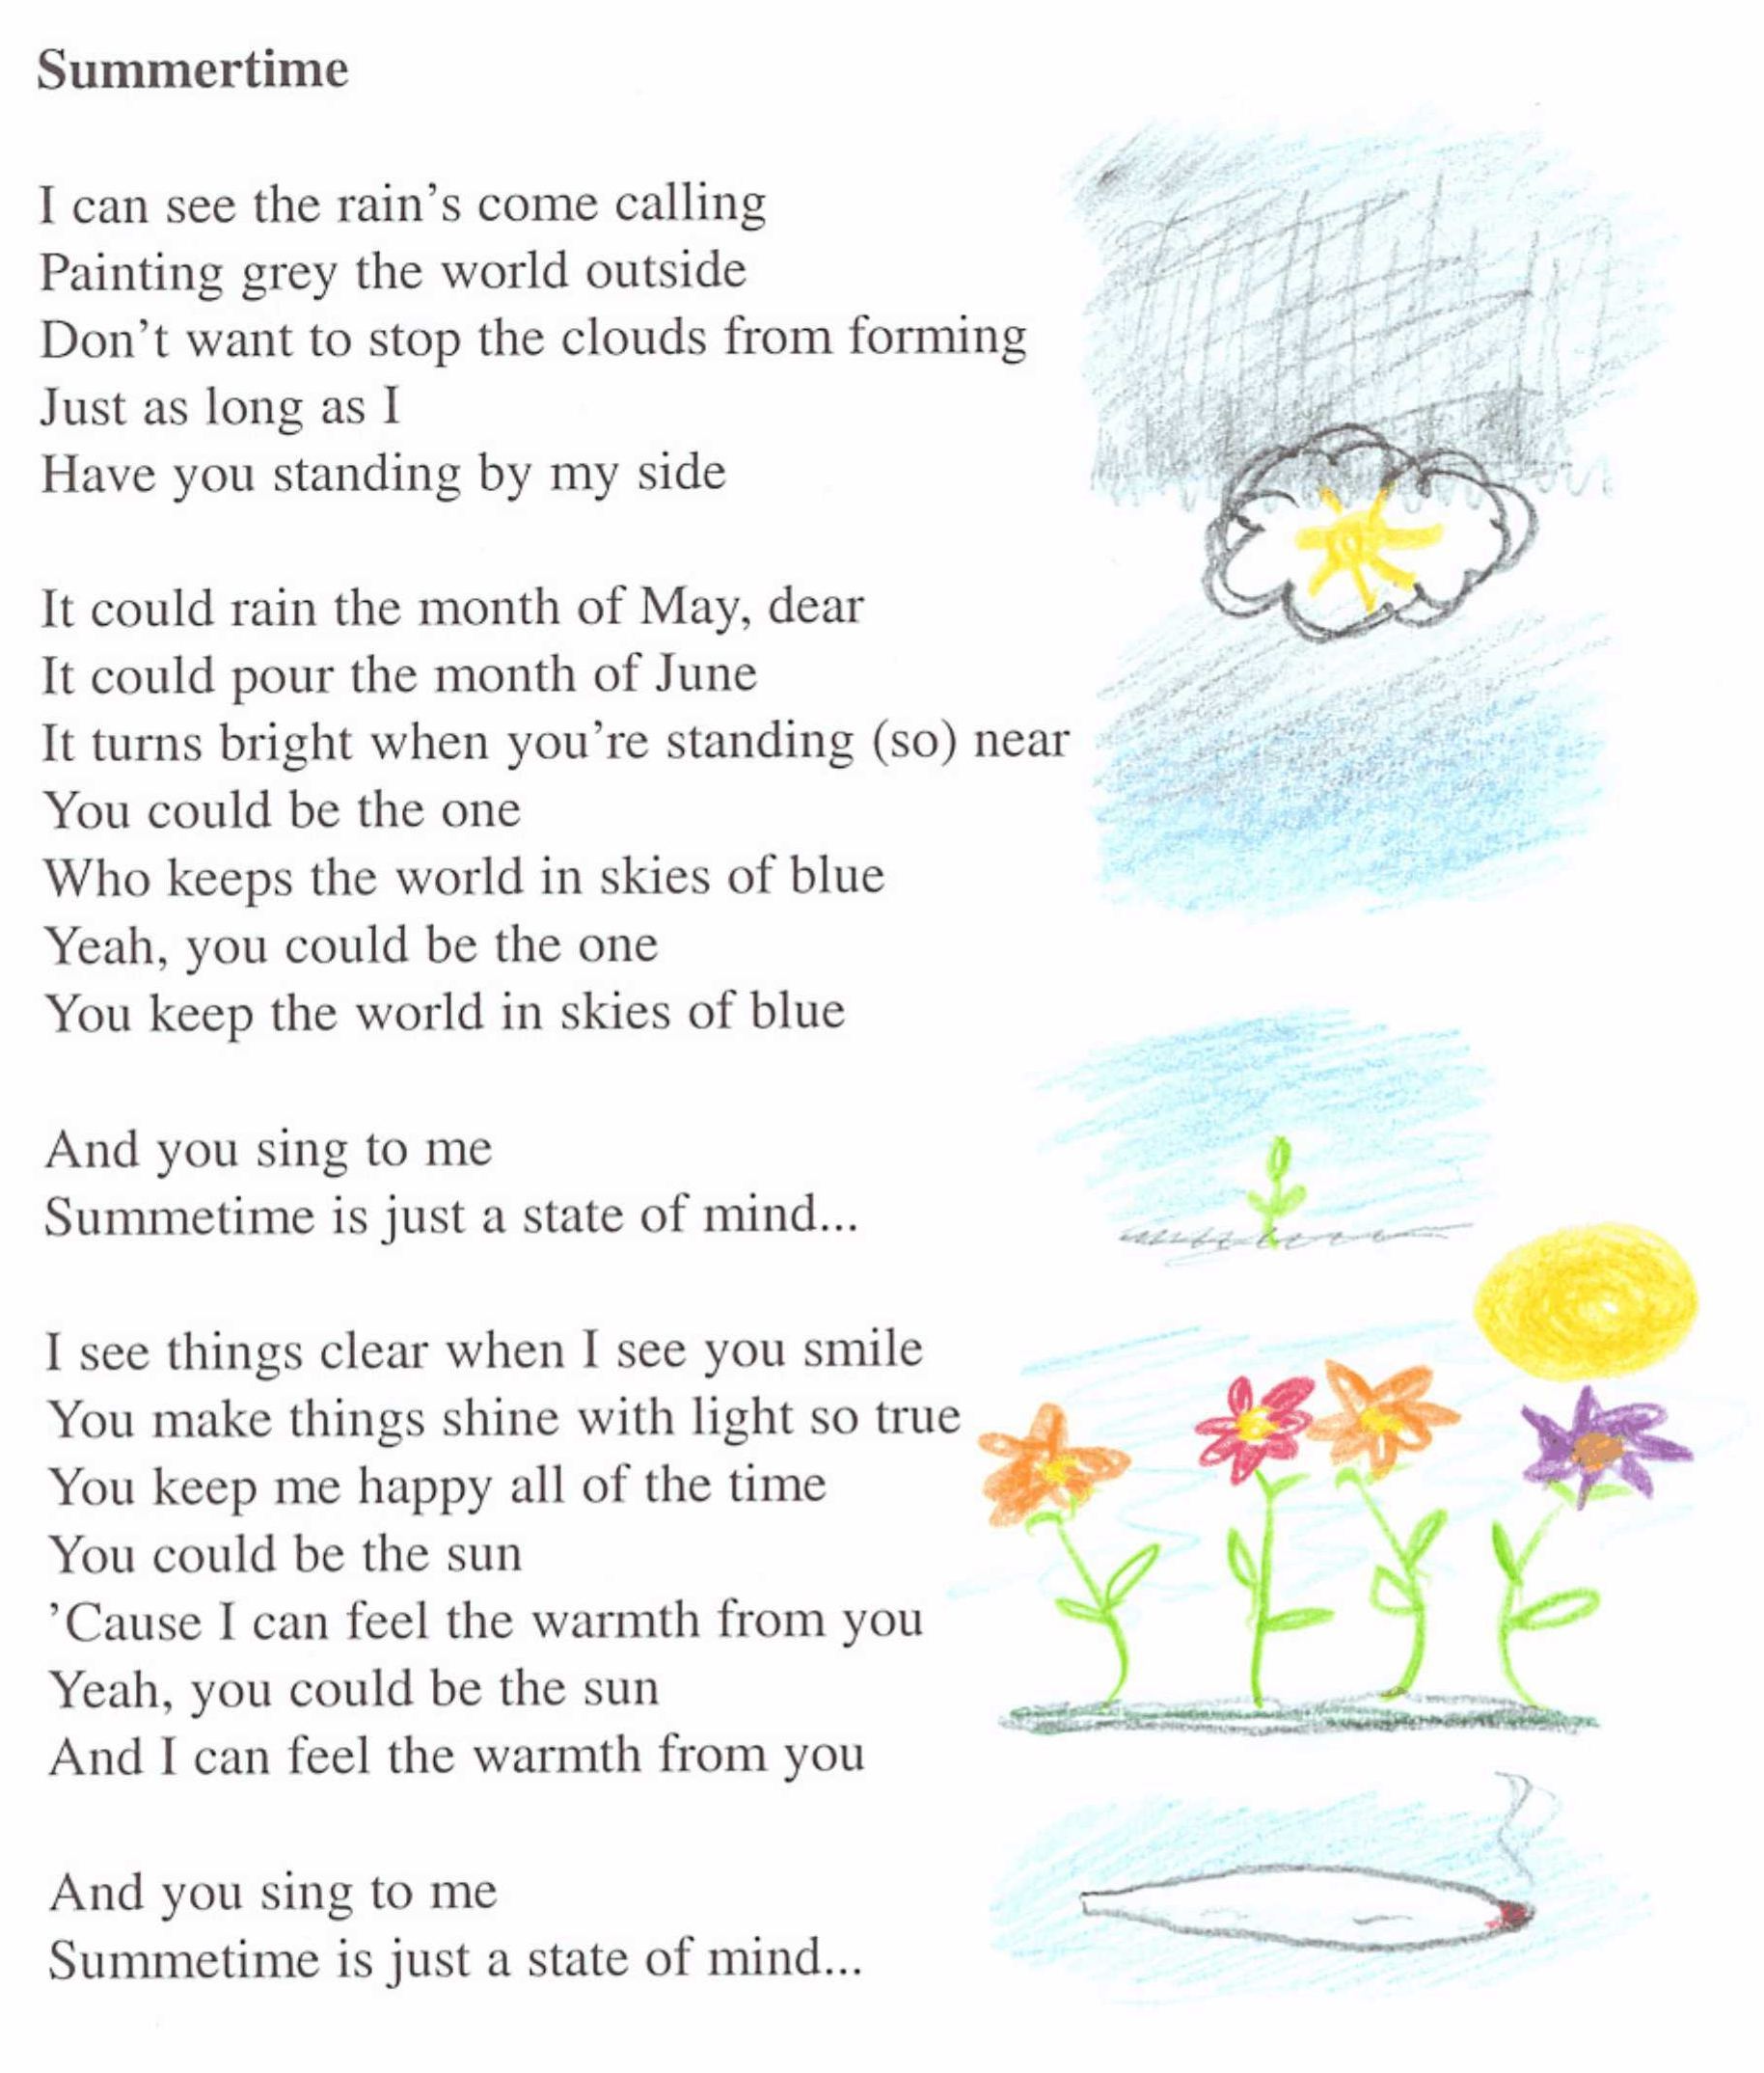 Summertime
I can see the rain's come calling
Painting grey the world outside
Don't want to stop the clouds from forming
Just as long as I
Have you standing by my side
It could rain the month of May, dear
It could pour the month of June
It turns bright when you're standing (so) near
You could be the one
Who keeps the world in skies of blue
Yeah, you could be the one
You keep the world in skies of blue
And you sing to me
Summetime is just a state of mind...
I see things clear when I see you smile
You make things shine with light so true
You keep me happy all of the time
You could be the sun
’Cause I can feel the warmth from you
Yeah, you could be the sun
And I can feel the warmth from you
And you sing to me
Summetime is just a state of mind...